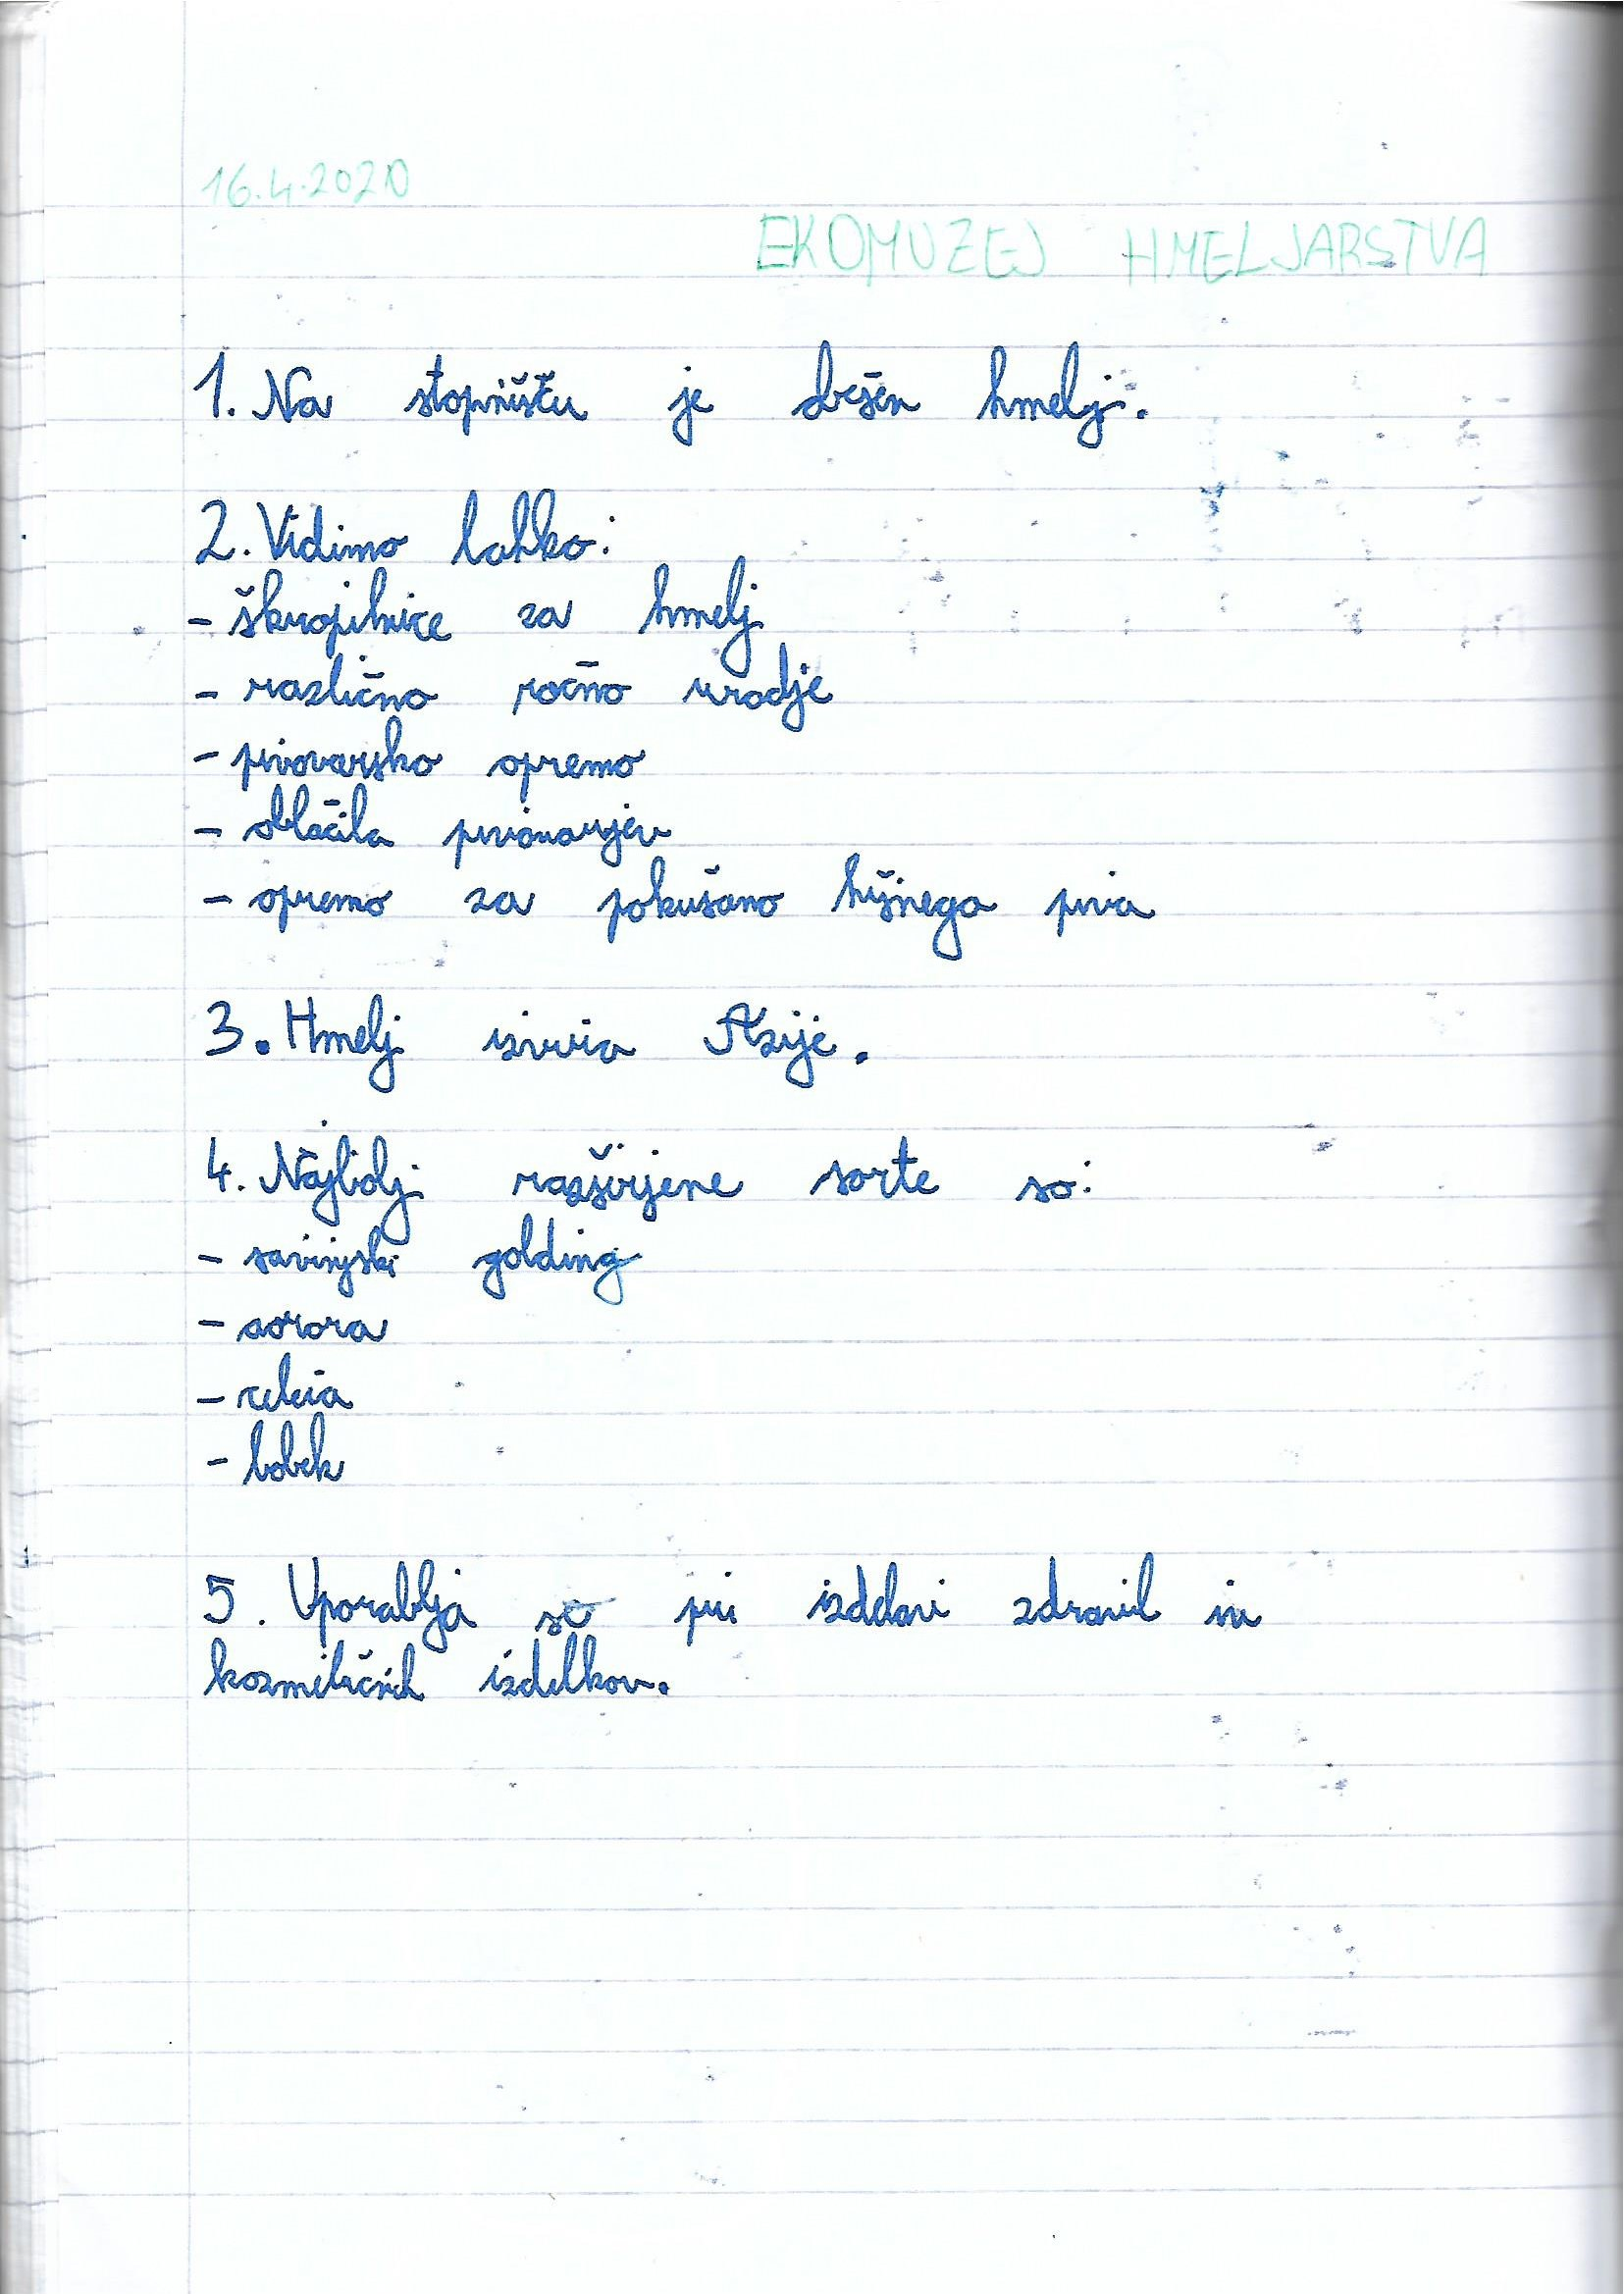 16.4.2020
EKOMUZEJ HMELJARSTVA
1. Na stopnišču je obešen hmelj.
2. Vidimo lahko:
- škropilnice za hmelj
- različno ročno orodje
- pivovarsko opremo
- oblačila pivovarjev
- opremo za pokušano hišnega piva
3. Hmelj izvira Azije.
4. Najbolj razširjene sorte so:
- savinjski golding
- aorora
- celeia
- bobek
5. Uporablja se pri izdelavi zdravil in
kozmetičnih izdelkov.